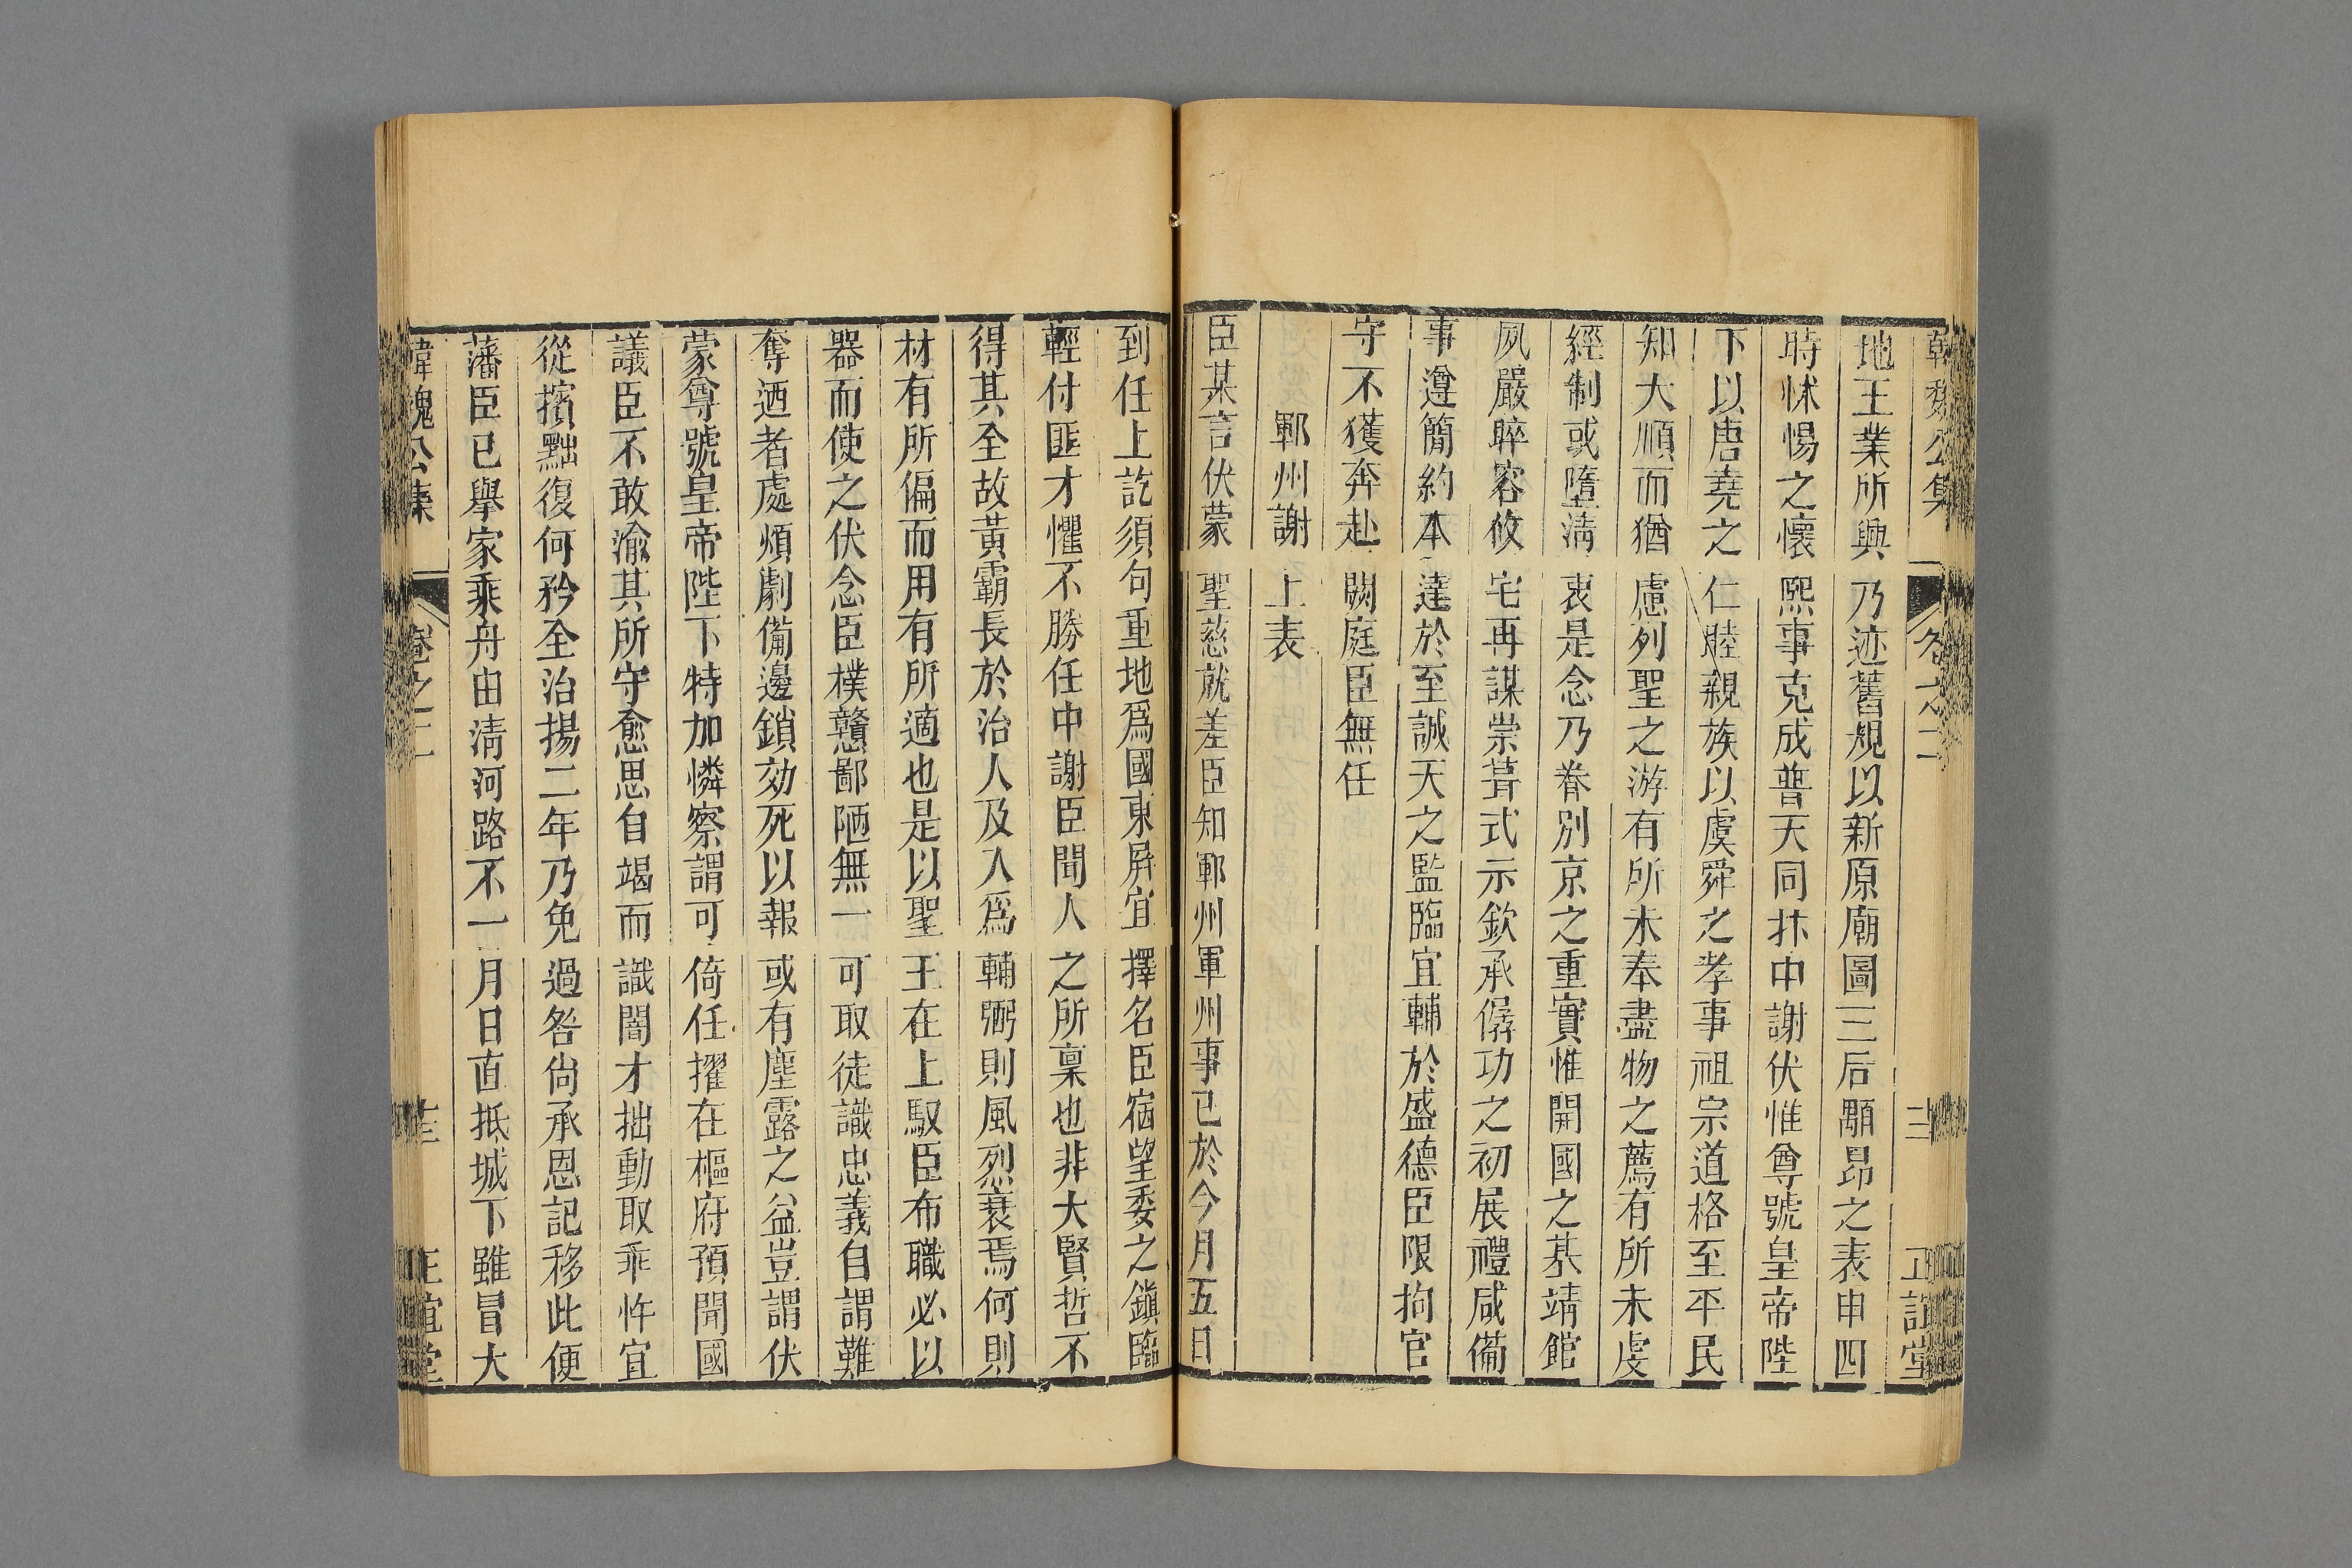 韓魏公集 卷之二 十二 正誼堂
地王業所興乃迹舊規以新原廟圖三后顒昂之表申四
時怵惕之懷熙事克成普天同抃中謝伏惟尊號皇帝陛
下以唐堯之仁睦親族以虞舜之孝事祖宗道格至平民
知大順而猶慮列聖之游有所未奉盡物之薦有所未虔
經制或墮淸衷是念乃眷別京之重實惟開國之基靖館
夙嚴晬容攸宅再謀崇葺式示欽承僝功之初展禮咸備
事遵簡約本達於至誠天之監臨宜輔於盛德臣限拘官
守不獲奔赴闕庭臣無任
鄆州謝上表
臣某言伏蒙聖慈就差臣知鄆州軍州事已於今月五日
到任上訖須句重地爲國東屛宜擇名臣宿望委之鎭臨
輕付匪才懼不勝任中謝臣聞人之所稟也非大賢哲不
得其全故黃霸長於治人及入爲輔弼則風烈衰焉何則
材有所偏而用有所適也是以聖王在上馭臣布職必以
器而使之伏念臣樸戇鄙陋無一可取徒識忠義自謂難
奪迺者處煩劇備邊鎖効死以報或有塵露之益豈謂伏
蒙尊號皇帝陛下特加憐察謂可倚任擢在樞府預聞國
議臣不敢渝其所守愈思自竭而識闇才拙動取乖忤宜
從擯黜復何矜全治揚二年乃免過咎尙承恩記移此便
藩臣已舉家乘舟由淸河路不一月日直抵城下雖冒大
韓魏公集 卷之二 十三 正誼堂